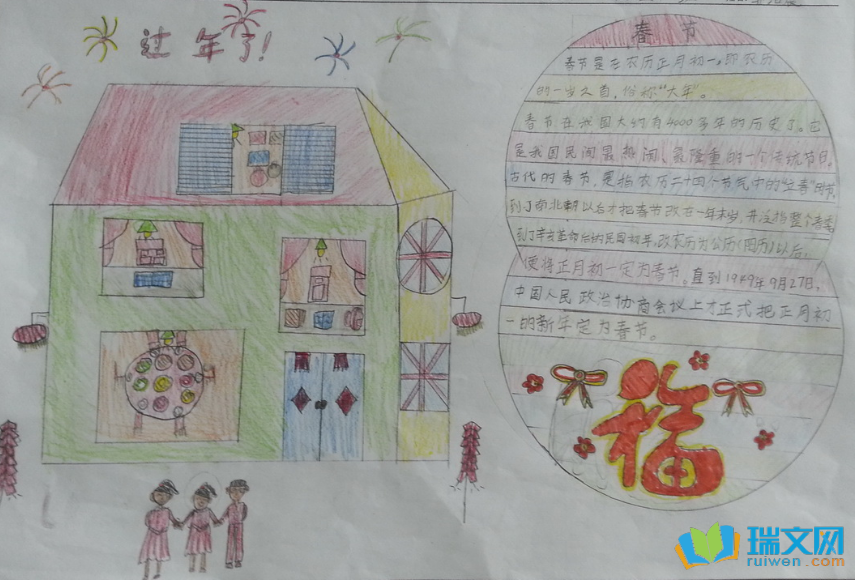 过年了!
春节
春节是在农历正月初一,即农历
的一岁之首,俗称"大年"。
春节在我国大约有4000多年的历史了。它
是我国民间最热闹、最隆重的一个传统节日。
古代的春节,是指农历二十四个节气中的"立春"时节,
到了南北朝以后才把春节改在一年末岁,并泛指整个春季,
到了辛亥革命后的民国初年,改农历为公历(阳历)以后,
便将正月初一定为春节。直到1949年9月27日,
中国人民政治协商会议上才正式把正月初
一的新年定为春节。
福
瑞文网
ruiwen.com